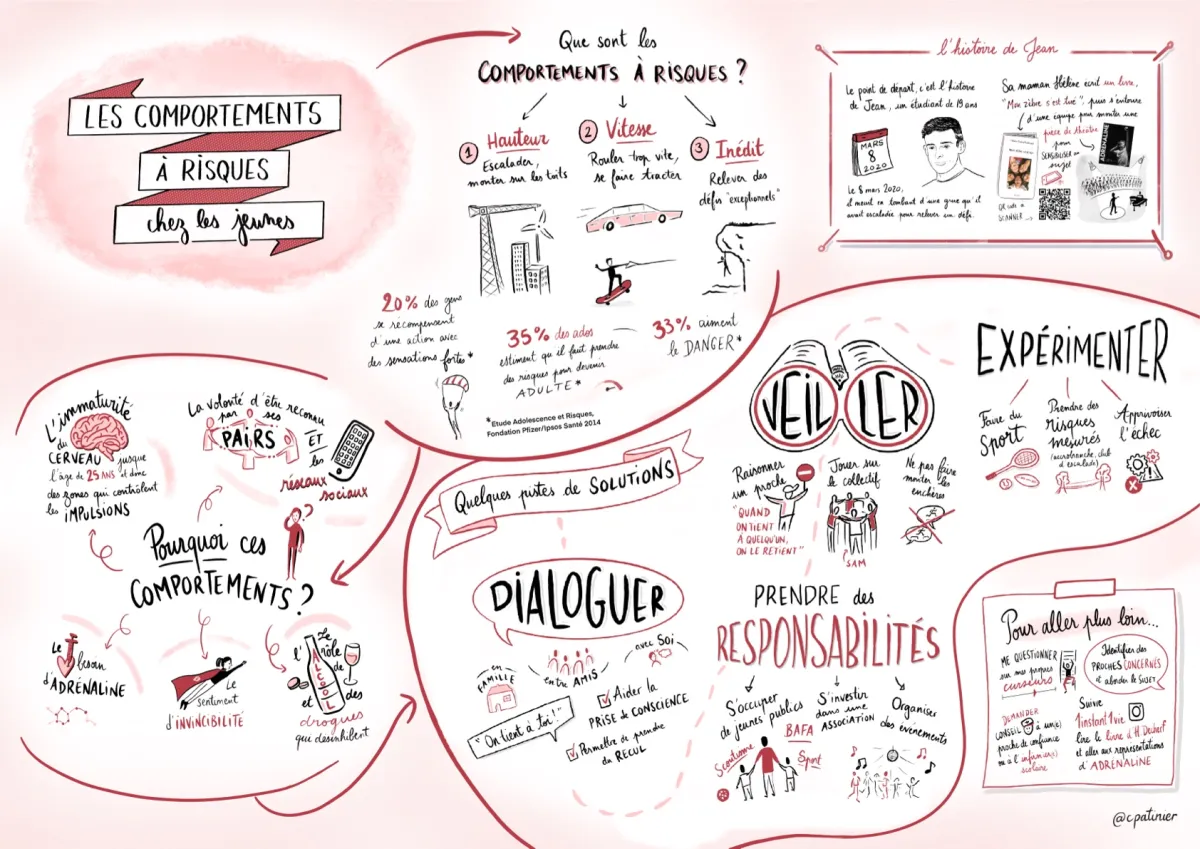 LES COMPORTEMENTS
À RISQUES
chez les jeunes
Que sont les
COMPORTEMENTS À RISQUES ?
1 Hauteur
Escalader,
monter sur les toits
2 Vitesse
Rouler trop vite,
se faire tracter
3 Inédit
Relever des
défis "exceptionnels"
20% des gens
se récompensent
d'une action avec
des sensations fortes *
35% des ados
estiment qu'il faut prendre
des risques pour devenir
ADULTE *
33% aiment
le DANGER *
* Etude Adolescence et Risques,
Fondation Pfizer/Ipsos Santé 2014
l'histoire de Jean
Le point de départ, c'est l'histoire
de Jean, un étudiant de 19 ans
MARS
8
2020
Le 8 mars 2020,
il meurt en tombant d'une grue qu'il
avait escaladée pour relever un défi.
Sa maman Hélène écrit un livre,
"Mon zèbre s'est tué", puis s'entoure
d'une équipe pour monter une
pièce de théâtre
pour
SENSIBILISER au
sujet
QR code à
SCANNER
ADRENALINE
Pourquoi ces
COMPORTEMENTS ?
L'immaturité
du
CERVEAU jusque
l'âge de 25 ANS et donc
des zones qui contrôlent
les IMPULSIONS
La volonté d'être reconnu
par ses
PAIRS
ET
les
réseaux
sociaux
Le
besoin
d'ADRÉNALINE
Le
sentiment
d'INVINCIBILITÉ
Le
rôle
de
l'
ALCOOL
et des
drogues
qui désinhibent
Quelques pistes de SOLUTIONS
DIALOGUER
en
FAMILLE
entre AMIS
avec SOI
"On tient à toi !"
Aider la
PRISE de CONSCIENCE
Permettre de prendre
du RECUL
VEILLER
Raisonner
un proche
"QUAND
ON TIENT
À QUELQU'UN,
ON LE RETIENT"
Jouer sur
le collectif
SAM
Ne pas faire
monter les
enchères
EXPÉRIMENTER
Faire du
Sport
Prendre des
risques
mesurés
(accrobranche, club
d'escalade)
Apprivoiser
l'échec
PRENDRE des
RESPONSABILITÉS
S'occuper
de jeunes publics
BAFA
Scoutisme
Sport
S'investir
dans une
ASSOCIATION
Organiser
des événements
Pour aller plus loin...
ME QUESTIONNER
sur mes propres
curseurs
Identifier des
PROCHES CONCERNÉS
et aborder le SUJET
DEMANDER
CONSEIL à un(e)
proche de confiance
ou à l'infirmier(e)
scolaire
Suivre
1instant1vie
lire le livre d'H
et aller aux représentations
d'ADRÉNALINE
@cpatinier